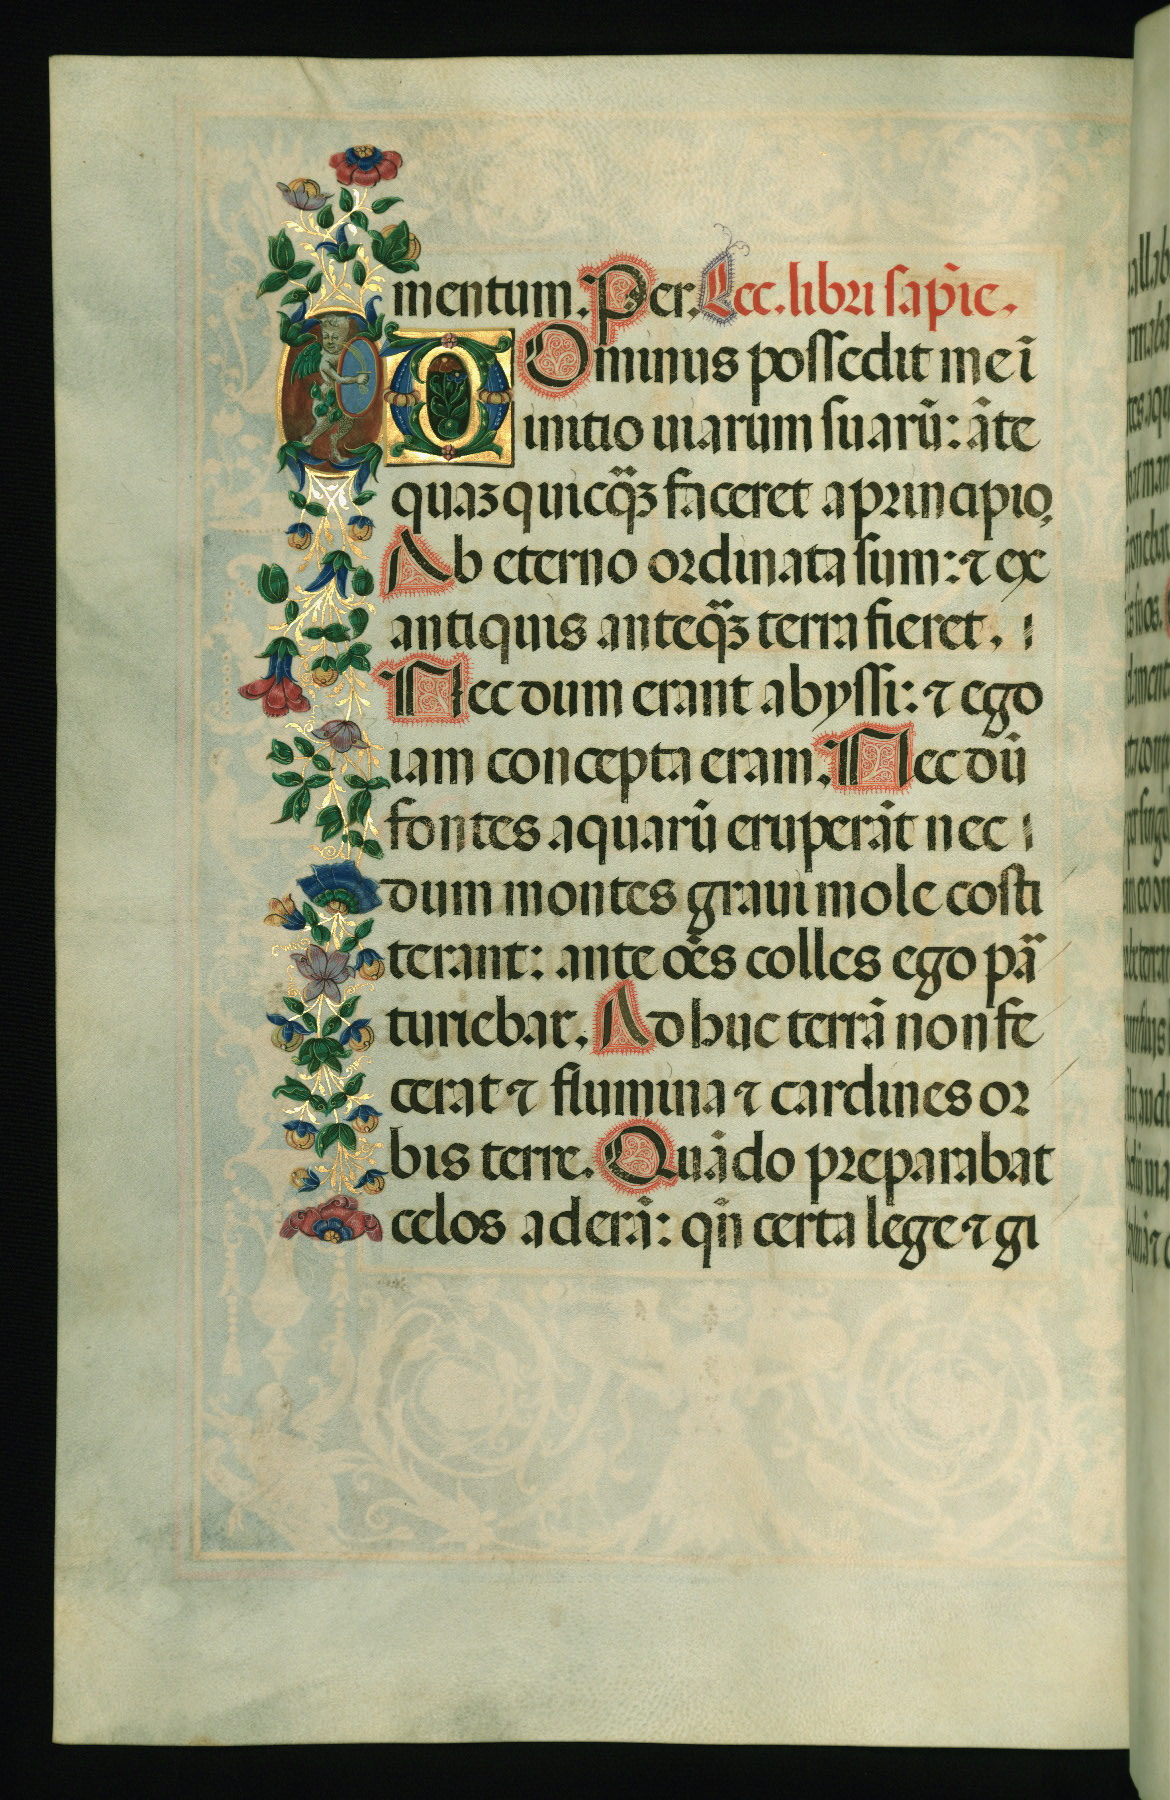 mentum. Per. Lec. libri sapīe.
DOminus possedit me ī
initio uiarum suarū: āte
quaʒ quicq̄ʒ faceret a principio,
Ab eterno ordinata sum: ⁊ ex
antiquis anteq̄ʒ terra fieret.
Nec dum erant abyssi: ⁊ ego
iam concepta eram. Nec dū
fontes aquarū eruperāt nec
dum montes graui mole costi
terant: ante oēs colles ego pā
turiebar. Ad huc terrā non fe
cerat ⁊ flumina ⁊ cardines or
bis terre. Quādo preparabat
celos aderā: qn̄ certa lege ⁊ gi